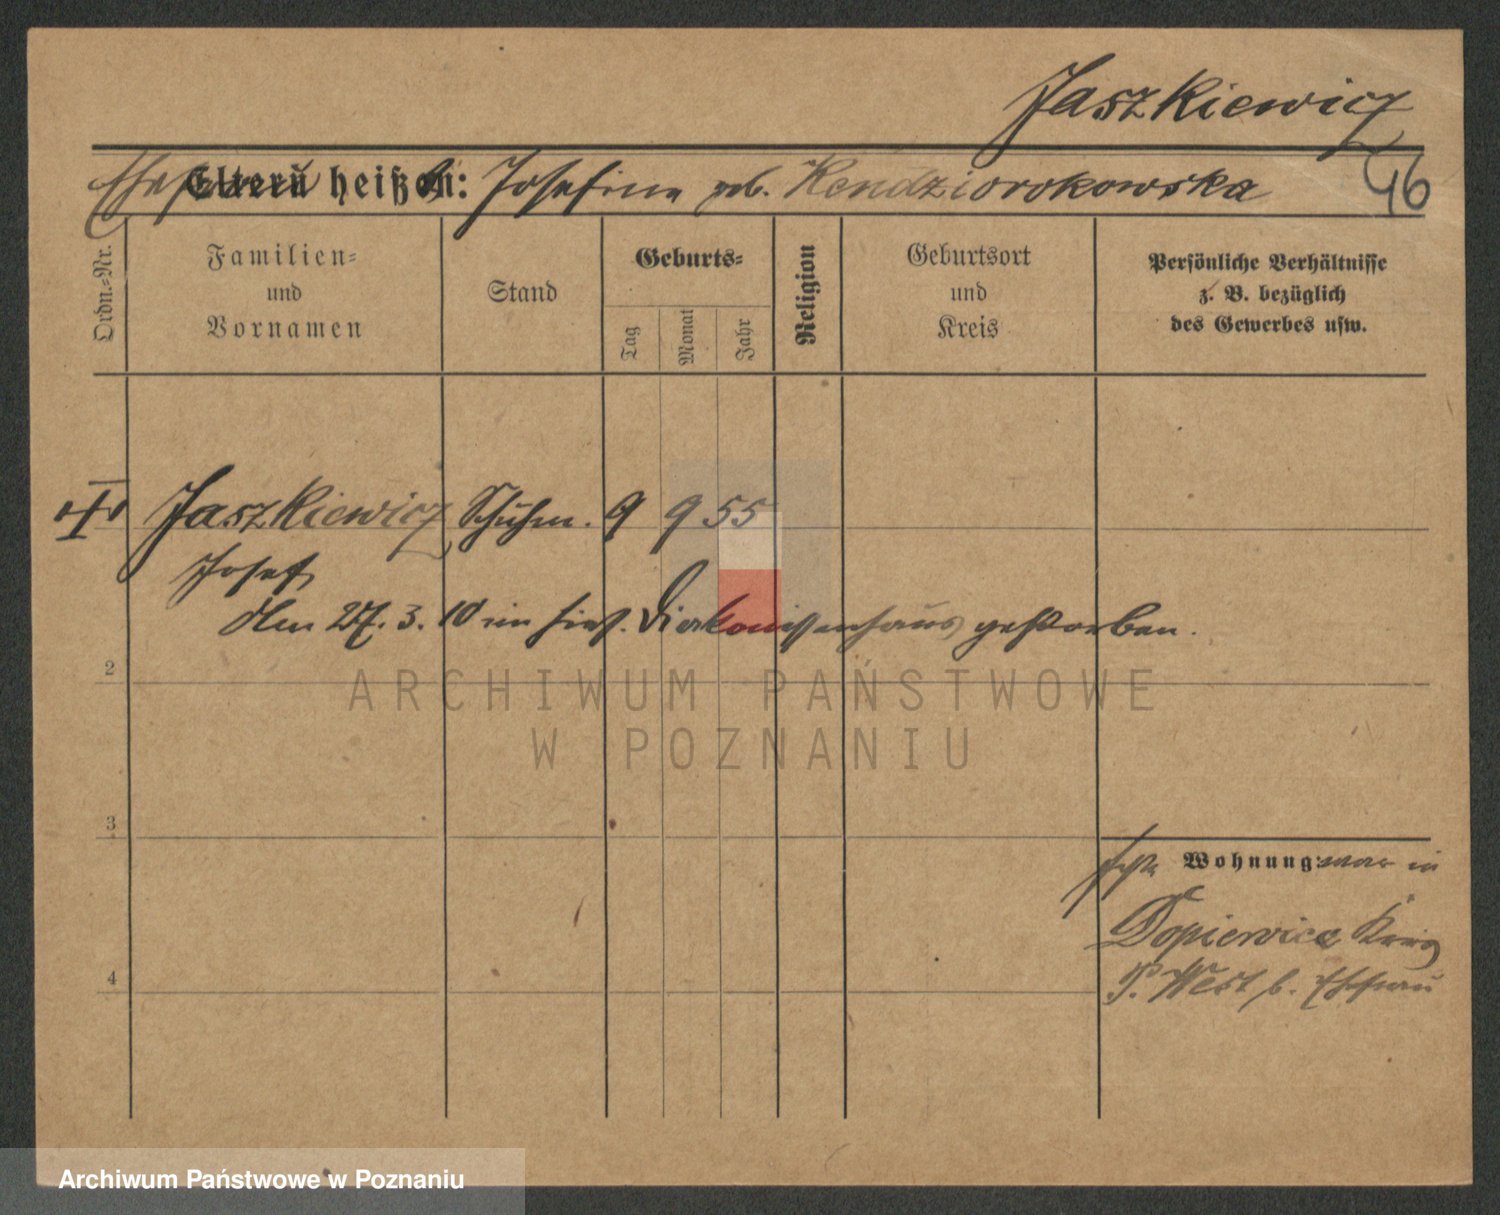 Jaszkiewicz
Ehefrau heißt: Josefine geb. Kendziorokowska 46
Ordn.=Nr.
Familien=
und
Vornamen
Stand
Geburts=
Tag
Monat
Jahr
Religion
Geburtsort
und
Kreis
Persönliche Verhältnisse
z. B. bezüglich
des Gewerbes usw.
Jaszkiewicz Schuhm. 9 9 55
Josef
den 27. 3. 10 im hies. Diakonissenhaus gestorben.
2
ARCHIWUM PAŃSTWOWE
W POZNANIU
3
Wohnung: war in
Dopiewice Kreis
P. West b. Ehefrau
4
Archiwum Państwowe w Poznaniu